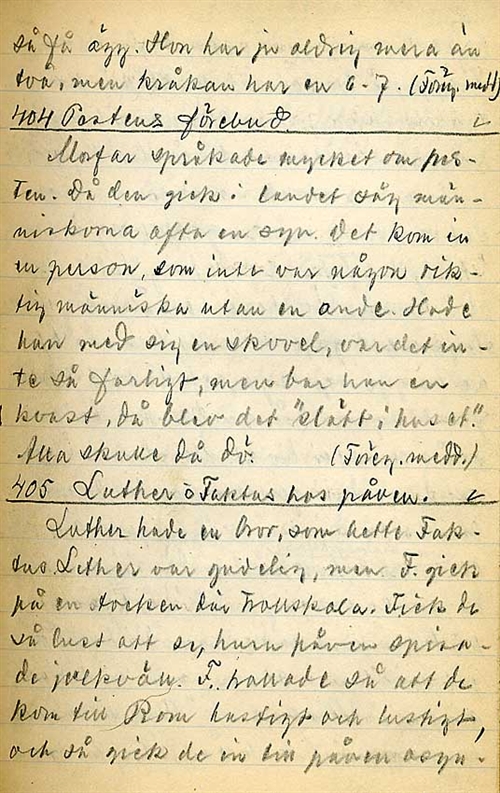 så få ägg. Hon har ju aldrig mera än
två, men kråkan har en 6-7. (Föreg. medd)
404 Pestens förebud.
Morfar språkade mycket om pes-
ten. Då den gick i landet såg män-
niskorna ofta en syn. Det kom in
en person, som inte var någon rik-
tig människa utan en ande. Hade
han med sig en skovel, var det in-
te så farligt, men bar han en
kvast, då blev det "slätt i huset".
Alla skulle då dö. (Föreg. medd.)
405 Luther o Faktus hos påven.
Luther hade en bror, som hette Fak-
tus. Luther var gudelig, men F. gick
på en tocken där trollskola. Fick de
så lust att se, huru påven spisa-
de julkväll. F. trollade så att de
kom till Rom hastigt och lustigt,
och så gick de in till påven osyn-